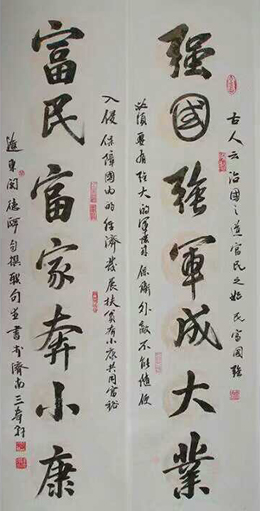 古人云治国之道富民之始民富国强
强国强军成大业
必须要有强大的军 保卫 外敌不能随便
入侵保障国内的经济发展扶贫奔小康共同富裕
富民富家奔小康
自撰联句并书于济南